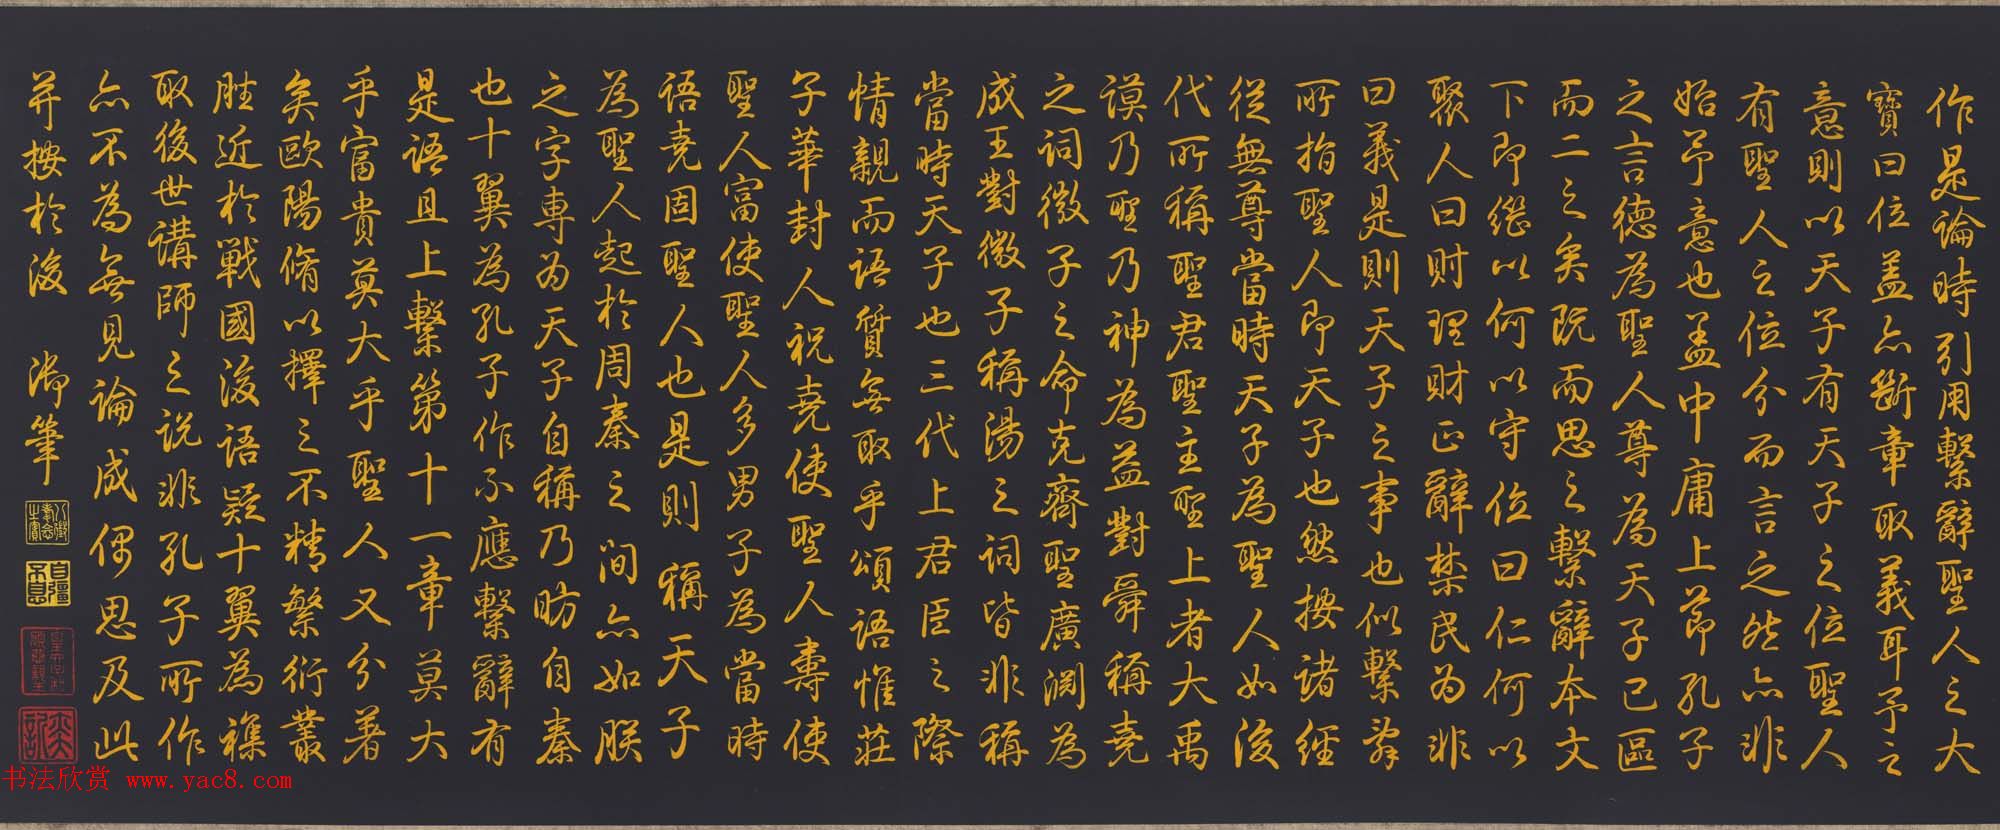 作是論時引用繫辭聖人之大
寶曰位盖亦斷章取義耳予之
意則以天子有天子之位聖人
有聖人之位分而言之然亦非
始予意也盖中庸上節孔子
之言德為聖人尊為天子已區
而二之矣既而思之繫辭本文
下即繼以何以守位曰仁何以
聚人曰財理財正辭禁民為非
曰義是則天子之事也似繫辭
所指聖人即天子也然按諸經
從無尊當時天子為聖人如後
代所稱聖君聖主聖上者大禹
謨乃聖乃神為益對舜稱堯
之詞微子之命克齊聖廣淵為
成王對微子稱湯之詞皆非稱
當時天子也三代上君臣之際
情親而語質無取乎頌語惟莊
子華封人祝堯使聖人壽使
聖人富使聖人多男子為當時
語堯固聖人也是則稱天子
為聖人起於周秦之間亦如朕
之字專為天子自稱乃昉自秦
也十翼為孔子作不應繫辭有
是語且上繫第十一章莫大
乎富貴莫大乎聖人又分著
矣歐陽脩以擇之不精繁衍叢
脞近於戰國後語疑十翼為襍
取後世講師之說非孔子所作
亦不為無見論成偶思及此
并按於後 御筆
八徵耄念之寶
自彊不息
书法欣赏 www.yac8.com